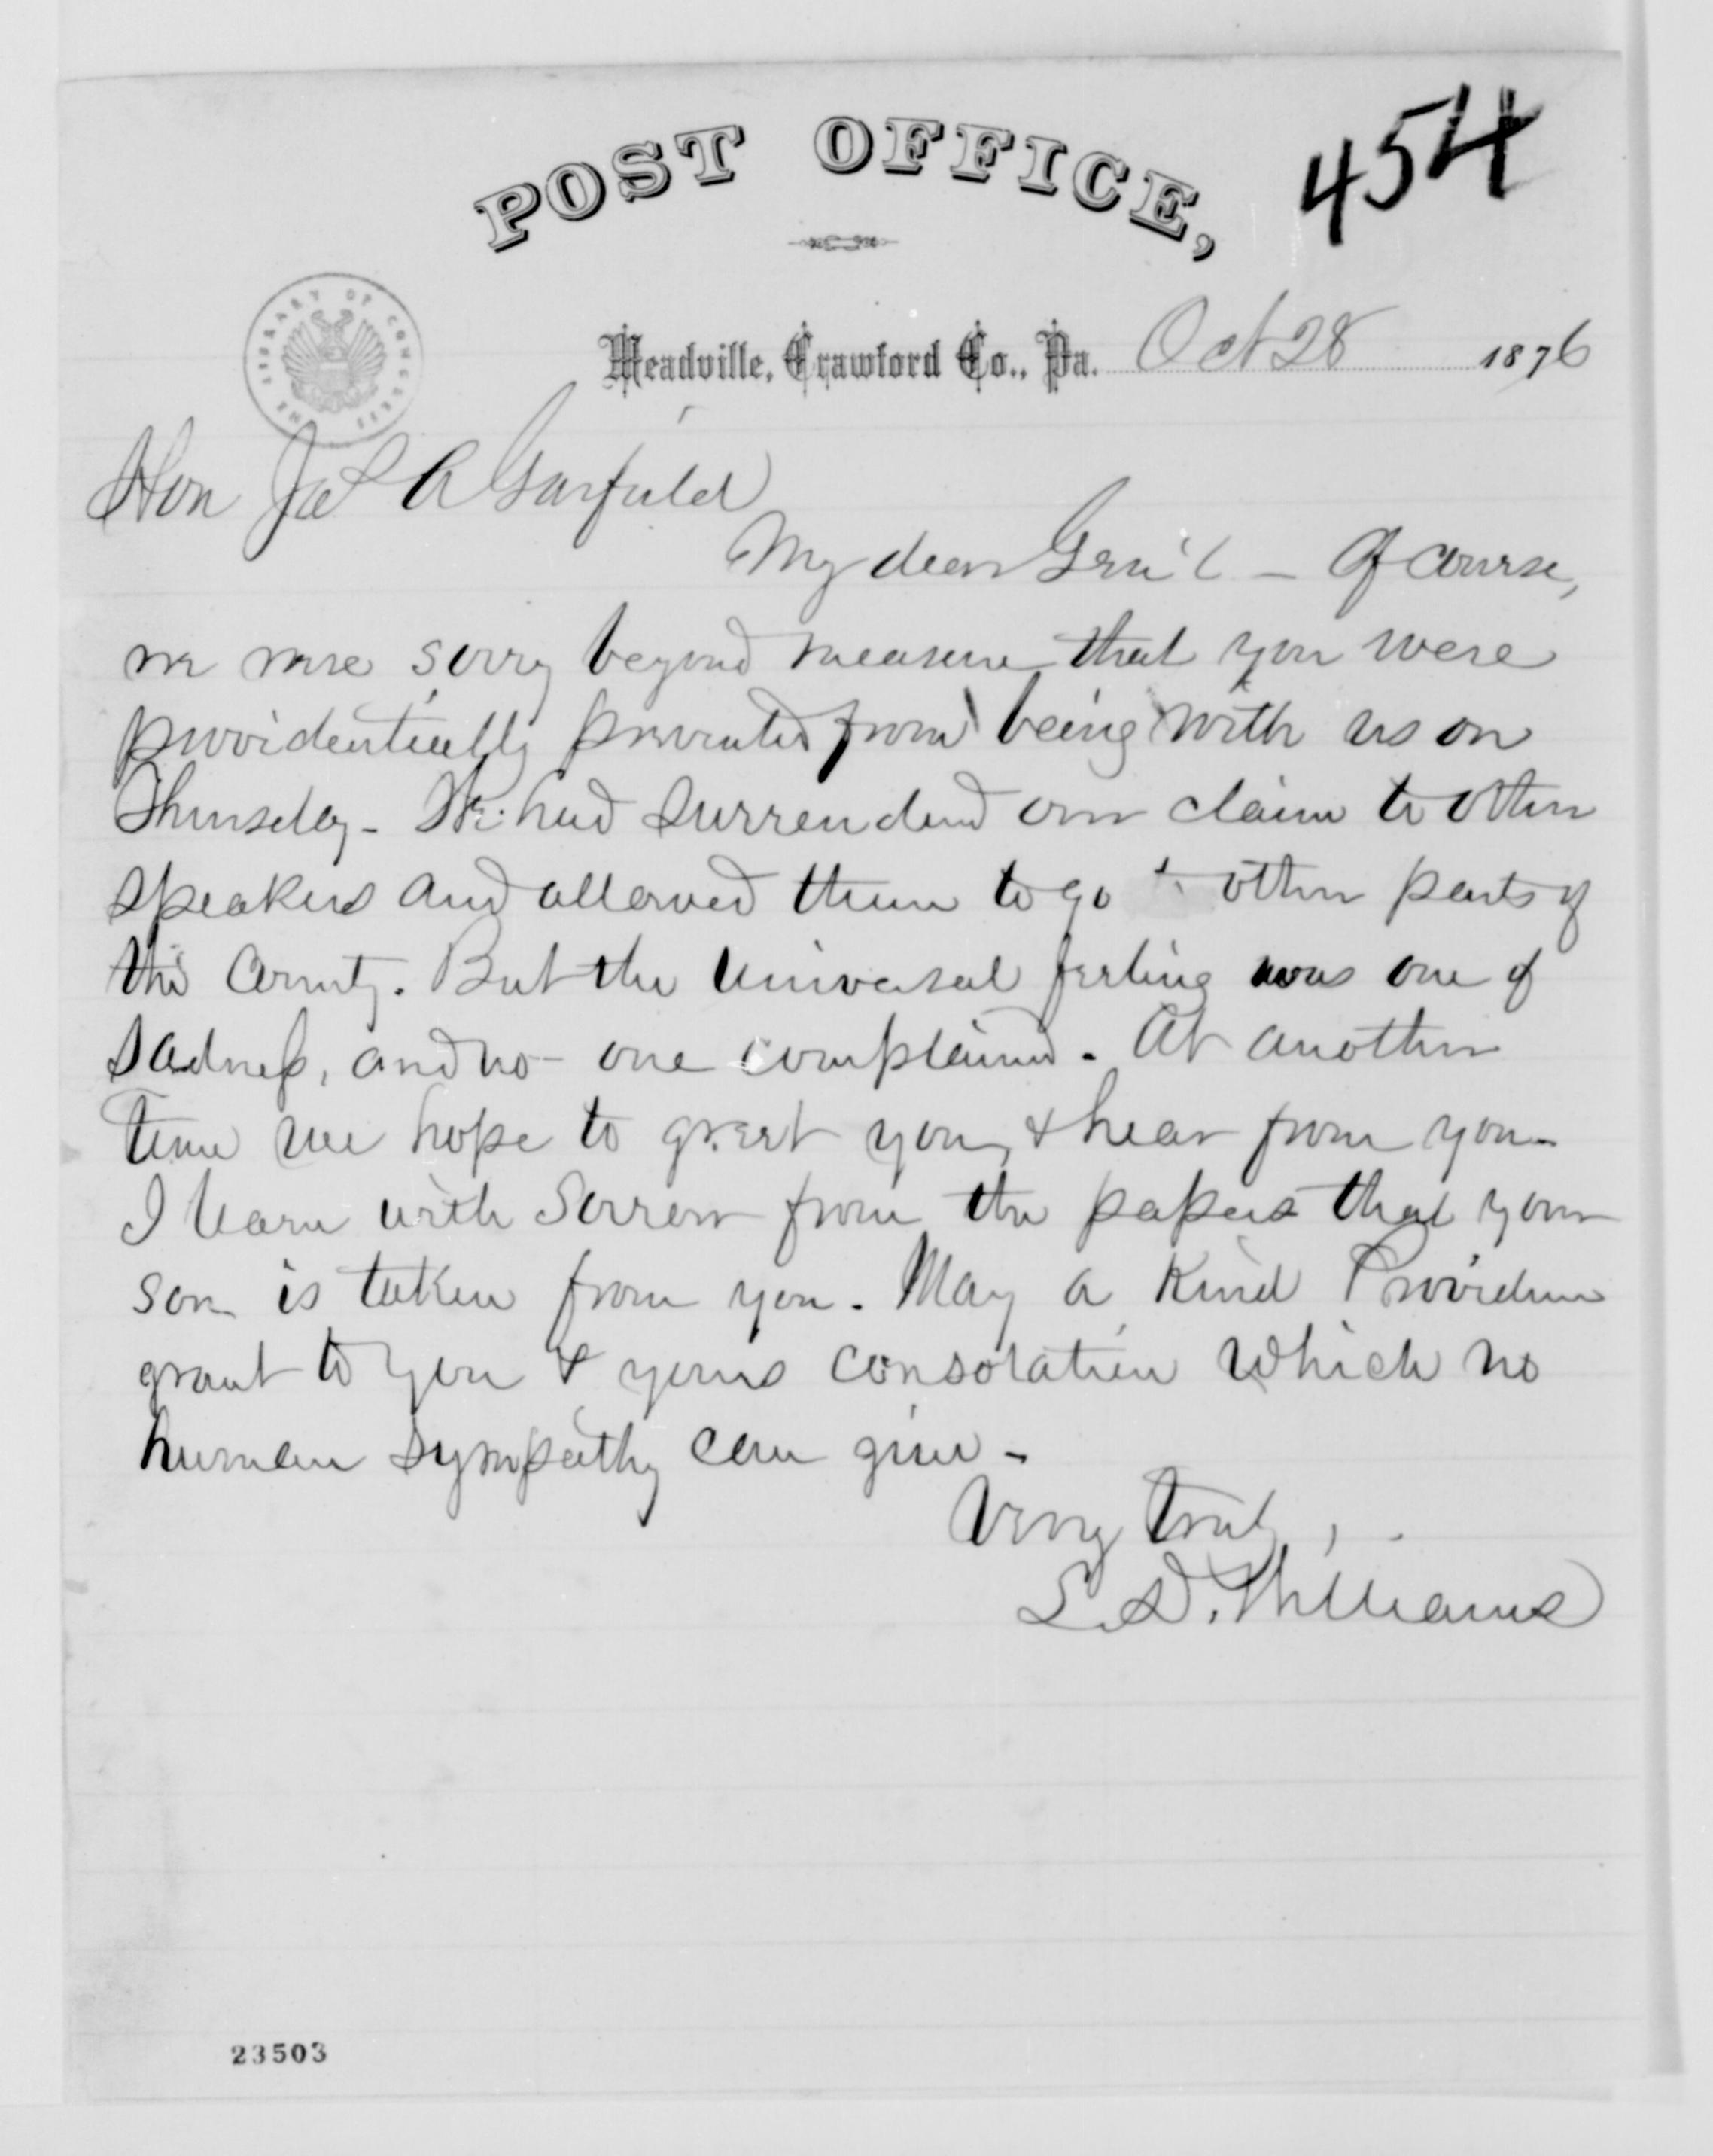 POST OFFICE,
454
THE LIBRARY OF CONGRESS
Meadville, Crawford Co., Pa. Oct 28 1876
Hon Jas A Garfield
My dear Gen'l - Of course,
we were sorry beyond measure that you were
providentially prevented from being with us on
Thursday - We had surrendered our claim to other
speakers and allowed them to go to other parts of
the County. But the universal feeling was one of
sadness, and no one complained. At another
time we hope to greet you, & hear from you -
I learn with sorrow from the papers that your
son is taken from you. May a Kind Providence
grant to you & yours consolation which no
human sympathy can give -
Very truly,
S. D. Williams
23503